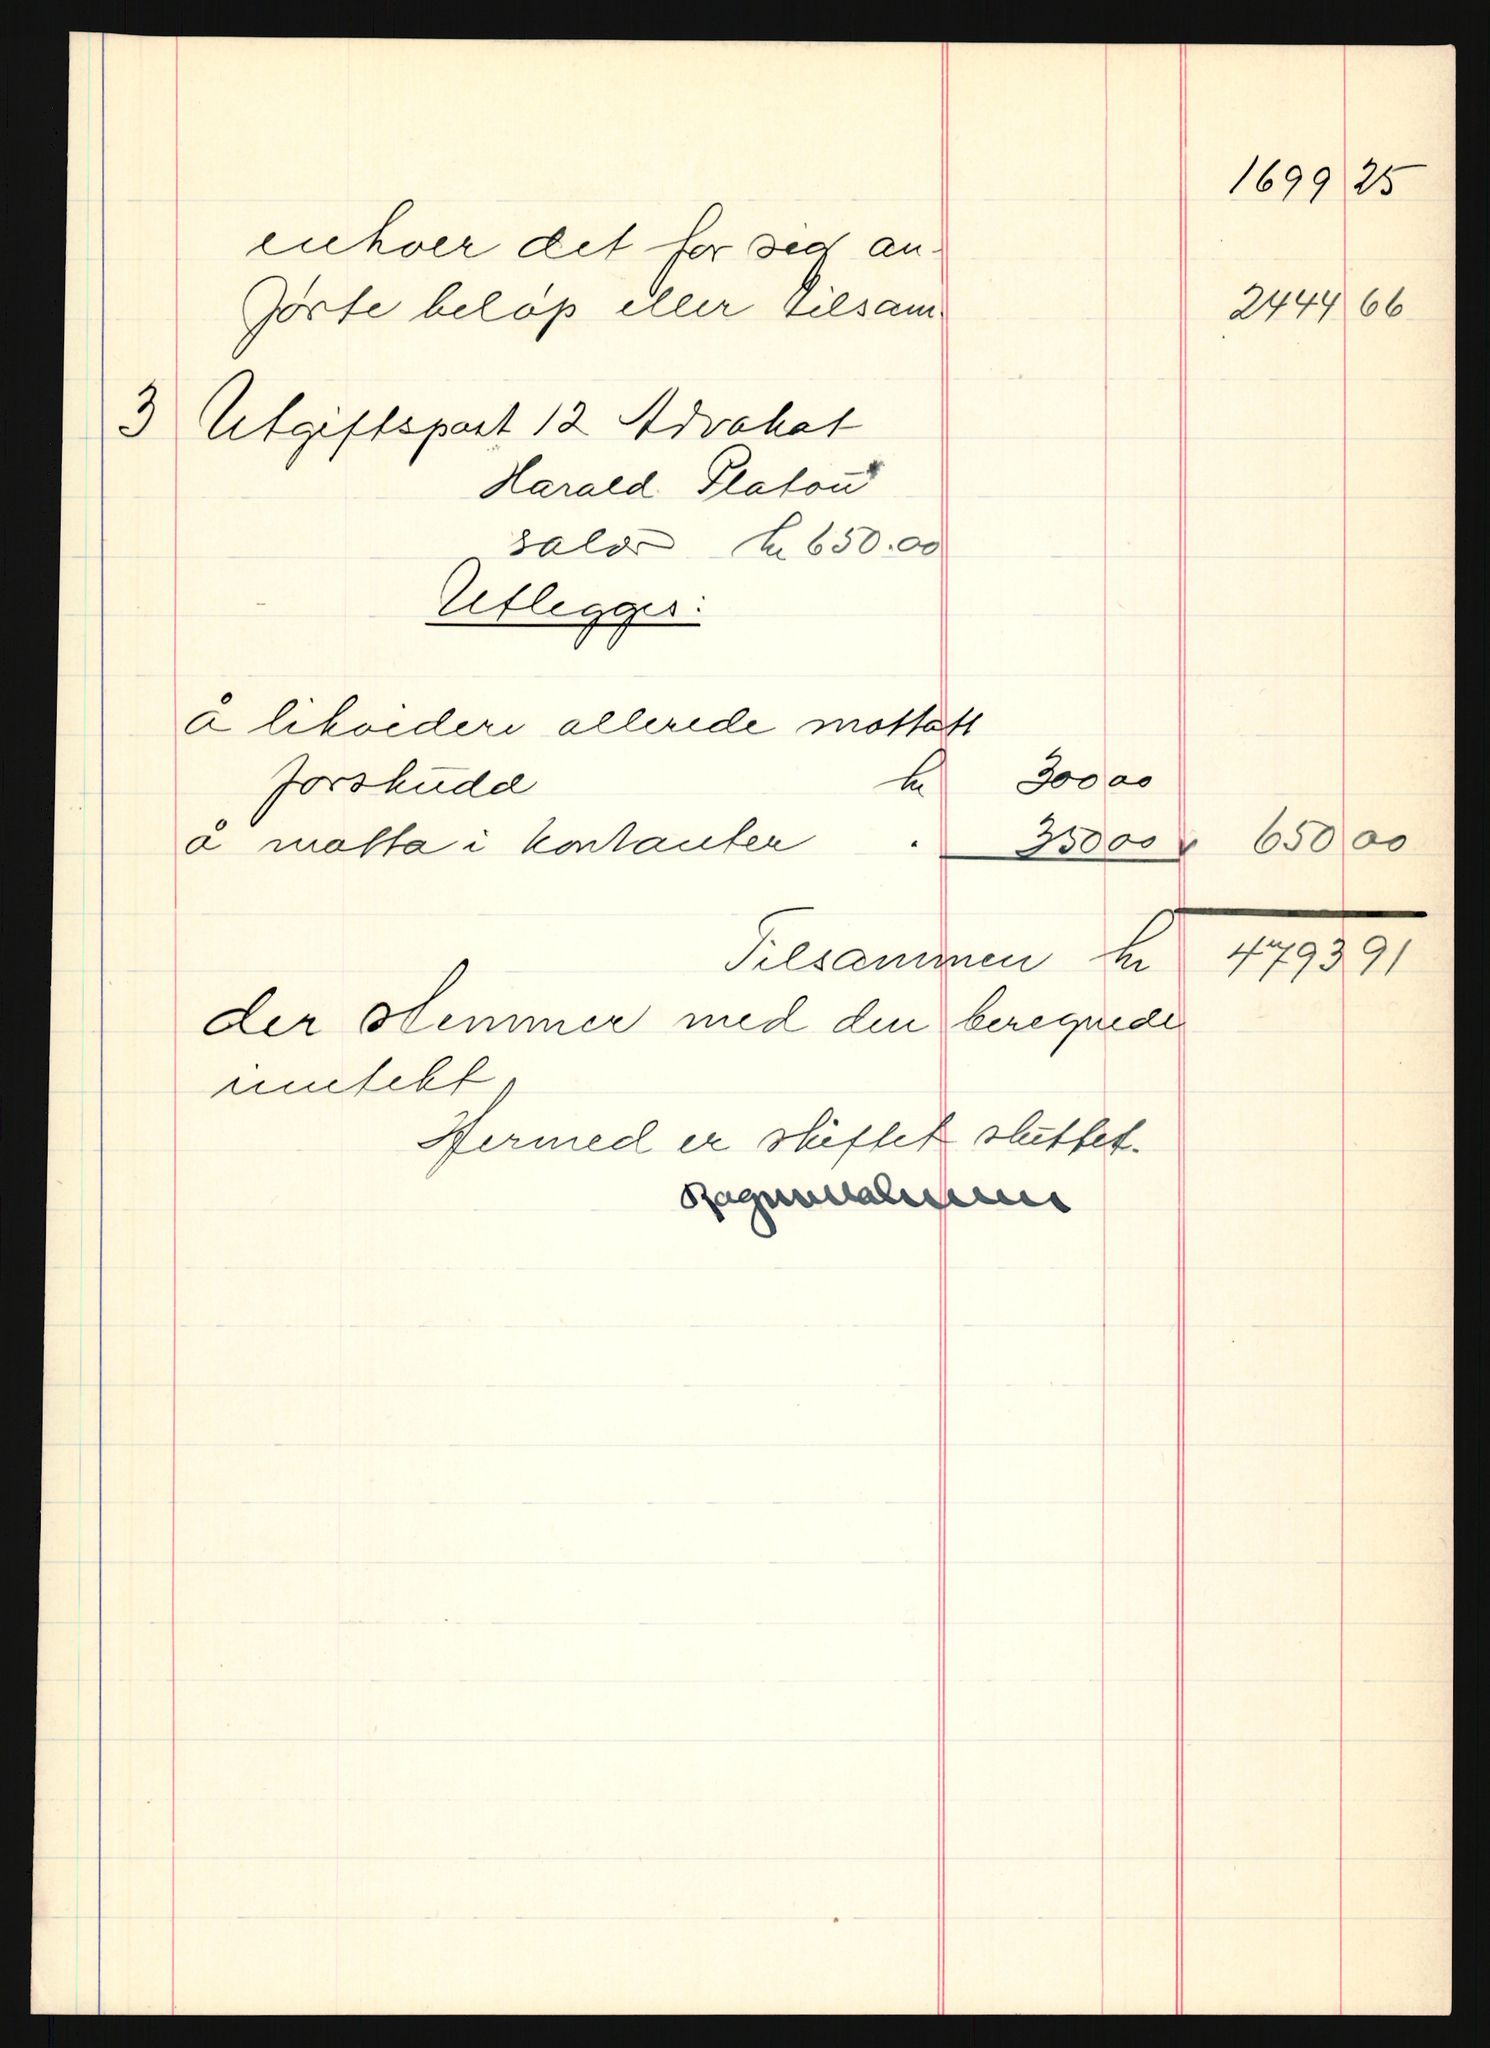 1699 25
enhver det for sig an-
førte beløp eller tilsam. 2444 66
3 Utgiftspost 12 Advokat
Harald Platou
salær kr 650.00
Utlegges:
å likvidere allerede mottatt
forskudd kr 300 00
å motta i kontanter " 350 00 650 00
Tilsammen kr 4793 91
der stemmer med den beregnede
inntekt.
Hermed er skiftet sluttet.